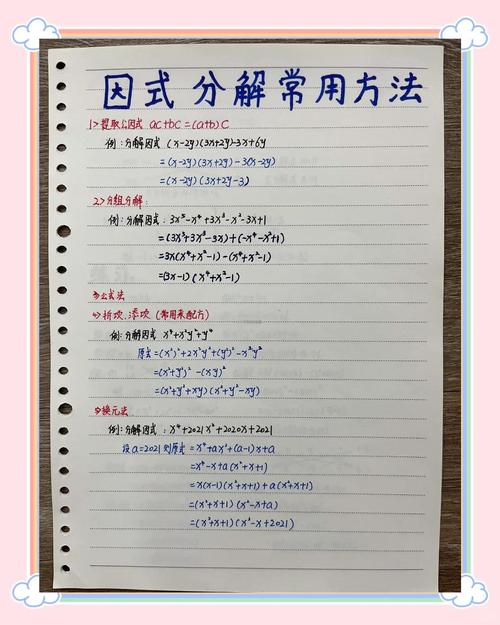 因式分解常用方法
1>提取公因式 ac+bc=(a+b)c
例:分解因式 (x-2y)(3x+2y)-3x+6y
=(x-2y)(3x+2y)-3(x-2y)
=(x-2y)(3x+2y-3)
2>分组分解:
例:分解因式:3x⁵-x⁴+3x³-x²-3x+1
=(3x⁵+3x³-3x)+(-x⁴-x²+1)
=3x(x⁴+x²-1)-(x⁴+x²-1)
=(3x-1)(x⁴+x²-1)
3>公式法
4>拆项.添项(常用来配方)
例:分解因式 x⁴+x²y²+y⁴
原式=(x²)²+2x²y²+(y²)²-x²y²
=(x²+y²)²-(xy)²
=(x²+y²+xy)(x²+y²-xy)
5>换元法
例:分解因式:x⁴+2021x²+2020x+2021
设a=2021则原式=x⁴+ax²+(a-1)x+a
=x⁴-x+a(x²+x+1)
=x(x-1)(x²+x+1)+a(x²+x+1)
=(x²+x+1)(x²-x+a)
=(x²+x+1)(x²-x+2021)